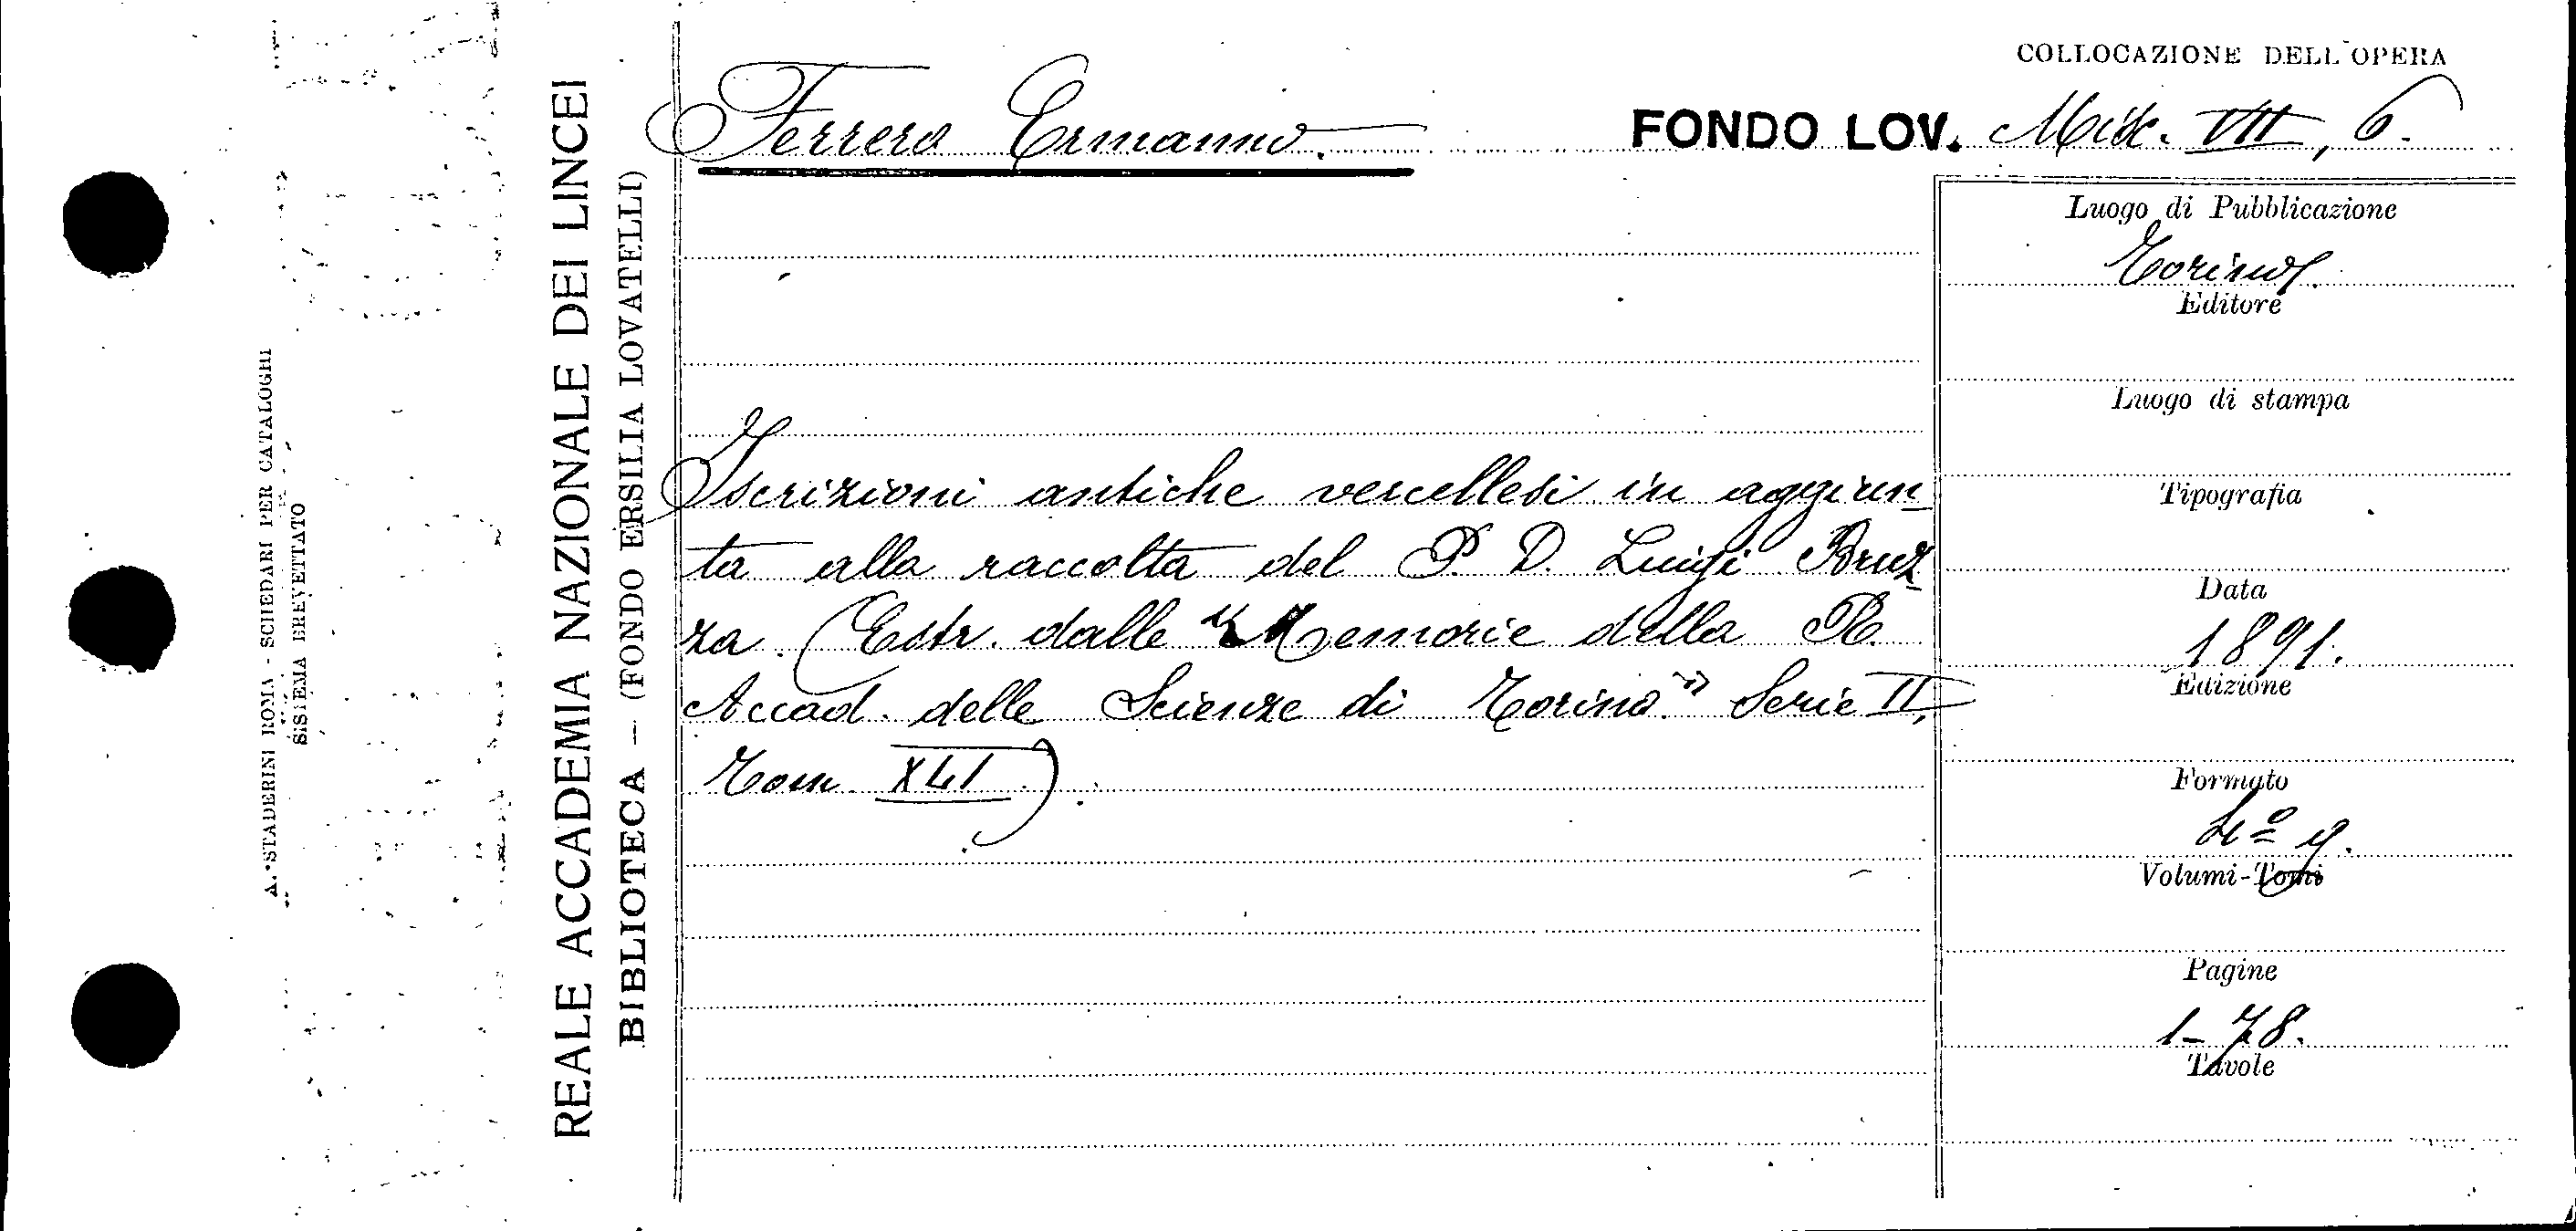 COLLOCAZIONE DELL'OPERA
Ferrero Ermanno.
FONDO LOV. Misc. VII, 6.
Iscrizioni antiche vercellesi in aggiun
ta alla raccolta del P. D. Luigi Bruz
za. (Estr. dalle "Memorie della R.
Accad. delle Scienze di Torino." Serie II,
Tom. XLI).
Luogo di Pubblicazione
Torino.
Editore
Luogo di stampa
Tipografia
Data
1891.
Edizione
Formato
4º g.
Volumi-Tomi
Pagine
1-78.
Tavole
REALE ACCADEMIA NAZIONALE DEI LINCEI
BIBLIOTECA — (FONDO ERSILIA LOVATELLI)
A. STADERINI ROMA - SCHEDARI PER CATALOGHI
SISTEMA BREVETTATO